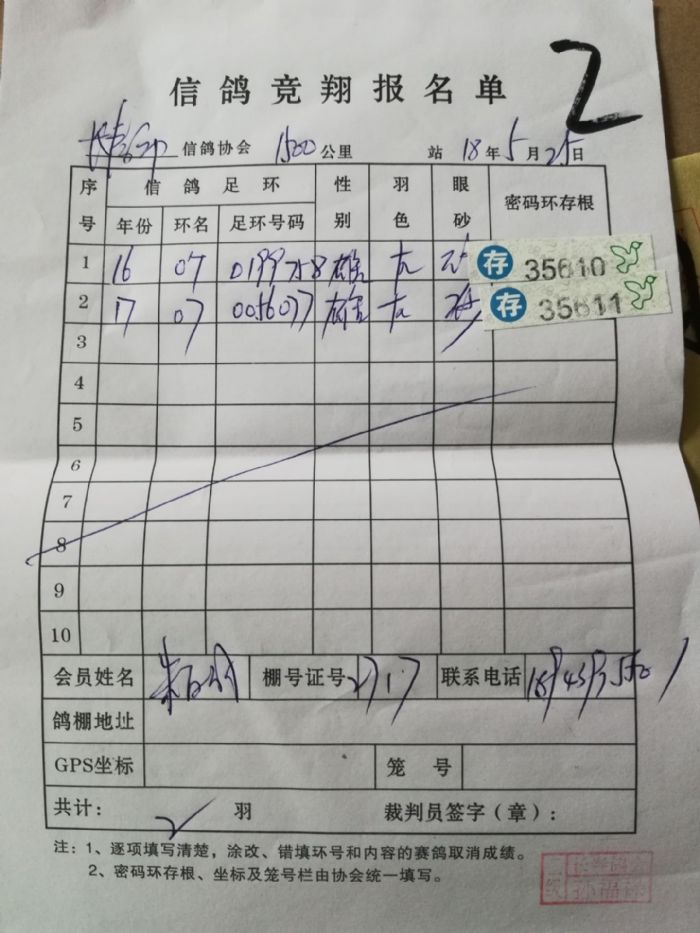 2
信鸽竞翔报名单
信鸽协会 1500公里 站 18年5月25日
序号 信鸽足环 性别 羽色 眼砂 密码环存根
年份 环名 足环号码
1 16 07 0199758 雄 存 35610
2 17 07 0056077 雄 存 35611
3
4
5
6
7
8
9
10
会员姓名 棚号证号 2717 联系电话
鸽棚地址
GPS坐标 笼号
共计: 2 羽 裁判员签字(章):
注:1、逐项填写清楚,涂改、错填环号和内容的赛鸽取消成绩。
2、密码环存根、坐标及笼号栏由协会统一填写。